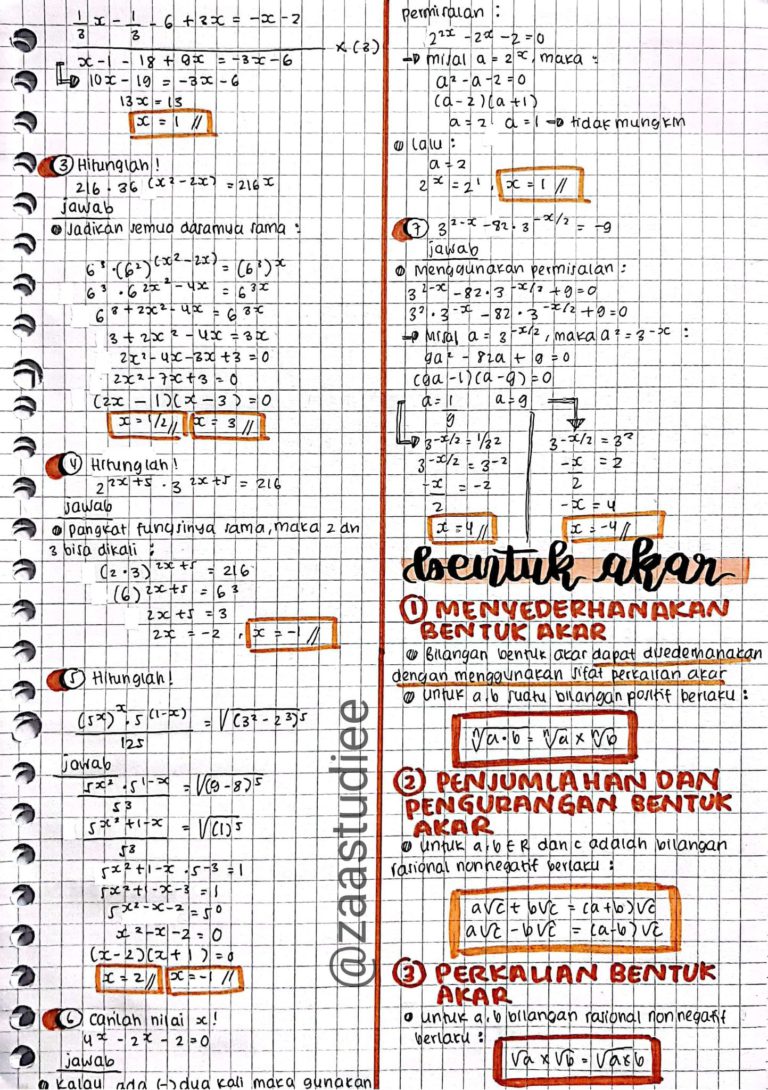 1/3 x - 1/3 - 6 + 3x = -x - 2
x (3)
x - 1 - 18 + 9x = -3x - 6
10x - 19 = -3x - 6
13x = 13
x = 1 //
③ Hitunglah!
216 · 36^(x² - 2x) = 216^x
jawab
Jadikan semua dasarnya sama :
6³ · (6²)^(x² - 2x) = (6³)^x
6³ · 6^(2x² - 4x) = 6^3x
6^(3 + 2x² - 4x) = 6^3x
3 + 2x² - 4x = 3x
2x² - 4x - 3x + 3 = 0
2x² - 7x + 3 = 0
(2x - 1)(x - 3) = 0
x = 1/2 // x = 3 //
④ Hitunglah!
2^(2x+5) · 3^(2x+5) = 216
jawab
pangkat fungsinya sama, maka 2 dn
3 bisa dikali :
(2 · 3)^(2x+5) = 216
(6)^(2x+5) = 6³
2x + 5 = 3
2x = -2 , x = -1 //
⑤ Hitunglah!
(5^x)^x · 5^(1-x) / 125 = √(3² - 2³)^5
jawab
5^x² · 5^(1-x) / 5³ = √(9-8)^5
5^(x²+1-x) / 5³ = √(1)^5
5^(x²+1-x) · 5^-3 = 1
5^(x²+1-x-3) = 1
5^(x²-x-2) = 5⁰
x² - x - 2 = 0
(x-2)(x+1) = 0
x = 2 // x = -1 //
⑥ carilah nilai x!
4^x - 2^x - 2 = 0
jawab
kalau ada (-) dua kali maka gunakan
permisalan :
2^2x - 2^x - 2 = 0
→ misal a = 2^x, maka :
a² - a - 2 = 0
(a-2)(a+1)
a = 2 a = 1 → tidak mungkin
lalu :
a = 2
2^x = 2¹, x = 1 //
⑦ 3^(2-x) - 82 · 3^(-x/2) = -9
jawab
Menggunakan permisalan :
3^(2-x) - 82 · 3^(-x/2) + 9 = 0
3² · 3^-x - 82 · 3^(-x/2) + 9 = 0
→ Misal a = 3^(-x/2), maka a² = 3^-x :
9a² - 82a + 9 = 0
(9a - 1)(a - 9) = 0
a = 1/9 a = 9
3^(-x/2) = 1/3² 3^(-x/2) = 3²
3^(-x/2) = 3^-2 -x/2 = 2
-x/2 = -2 -x = 4
x = 4 // x = -4 //
bentuk akar
① MENYEDERHANAKAN
BENTUK AKAR
Bilangan bentuk akar dapat disederhanakan
dengan menggunakan sifat perkalian akar
untuk a, b suatu bilangan positif berlaku :
ⁿ√a · b = ⁿ√a x ⁿ√b
② PENJUMLAHAN DAN
PENGURANGAN BENTUK
AKAR
untuk a, b ∈ R dan c adalah bilangan
rasional nonnegatif berlaku :
a√c + b√c = (a+b)√c
a√c - b√c = (a-b)√c
③ PERKALIAN BENTUK
AKAR
untuk a, b bilangan rasional nonnegatif
berlaku :
√a x √b = √a x b
@zaastudiee